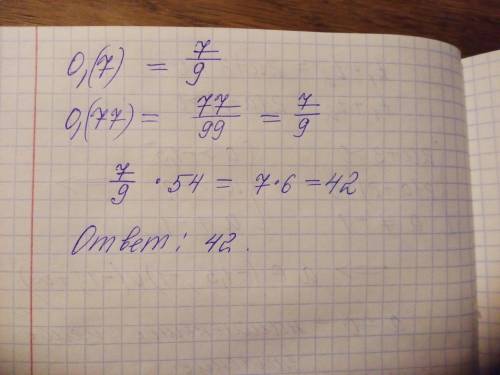 0,(7) = 7/9
0,(77) = 77/99 = 7/9
7/9 · 54 = 7·6 = 42
Ответ: 42.